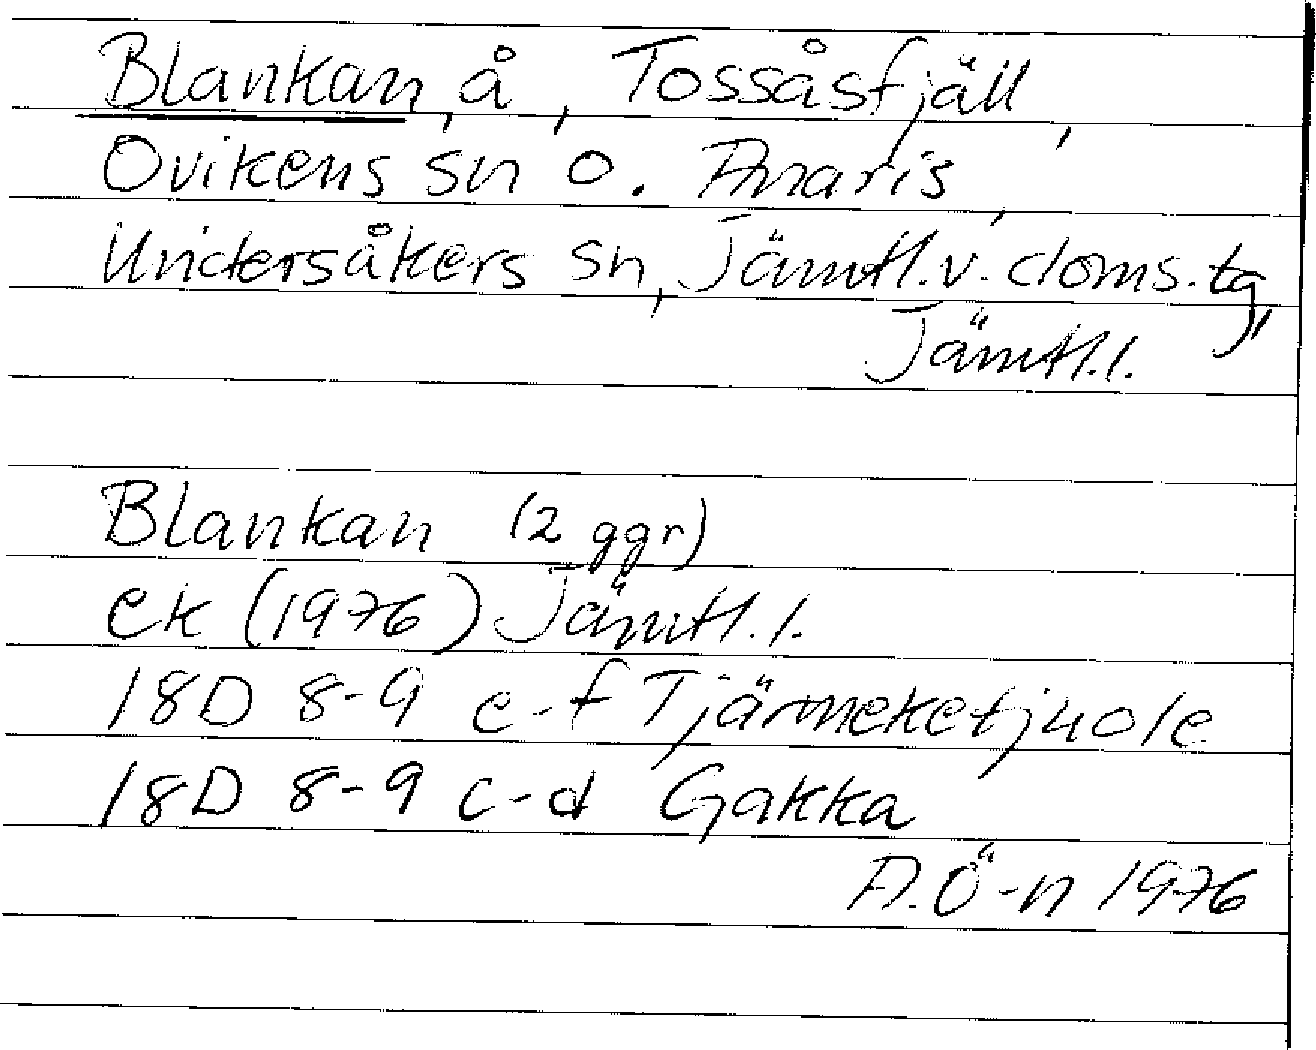 Blankan, å, Tossåsfjäll,
Ovikens sn o. Anaris,
Undersåkers sn, Jämtl.v. doms.tg,
Jämtl.l.
Blankan (2 ggr)
ek (1976) Jämtl.l.
18D 8-9 e-f Tjärmeketjuole
18D 8-9 c-d Gakka
A.Ö-n 1976